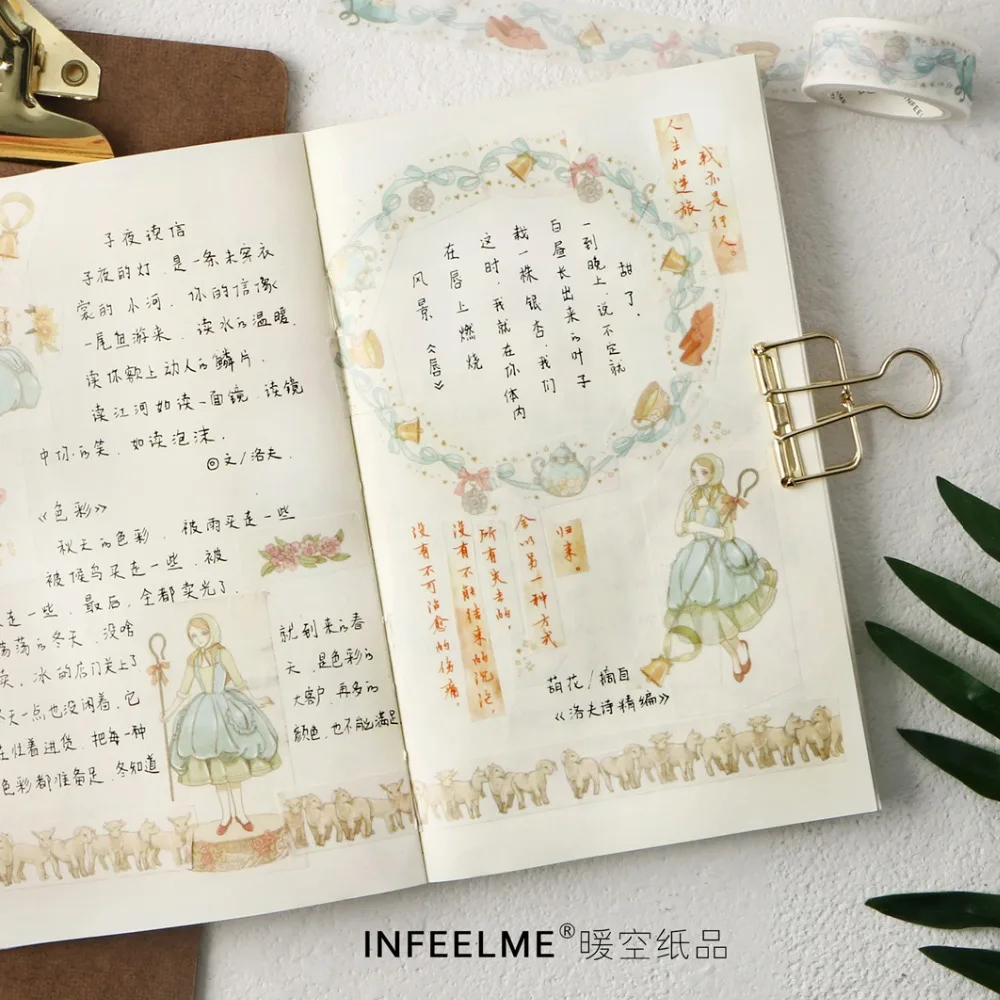 子夜读信
子夜的灯.是一条未穿衣
裳的小河.你的信像
一尾鱼游来.读水的温暖.
读你额上动人的鳞片.
读江河如读一面镜.读镜
中你的笑,如读泡沫.
◎文/洛夫.
《色彩》
秋天的色彩,被雨买走一些
被候鸟买走一些.被
走一些.最后,全都卖光了
荡荡的冬天.没啥
卖.冰的店门关上了
冬天一点也没闲着.它
在忙着进货.把每一种
色彩都准备足.冬知道
就到来的春
天,是色彩的
大客户,再多的
颜色,也不能满足
人生如逆旅,
我亦是行人。
《唇》
风景
在唇上燃烧
这时,我就在你体内
栽一株银杏,我们
白昼长出来的叶子
一到晚上,说不定就
甜了.
没有不可治愈的伤痛,
没有不能结束的沉沦,
所有失去的,
会以另一种方式
归来。
葫花/摘自
《洛夫诗精编》
INFEELME®暖空纸品